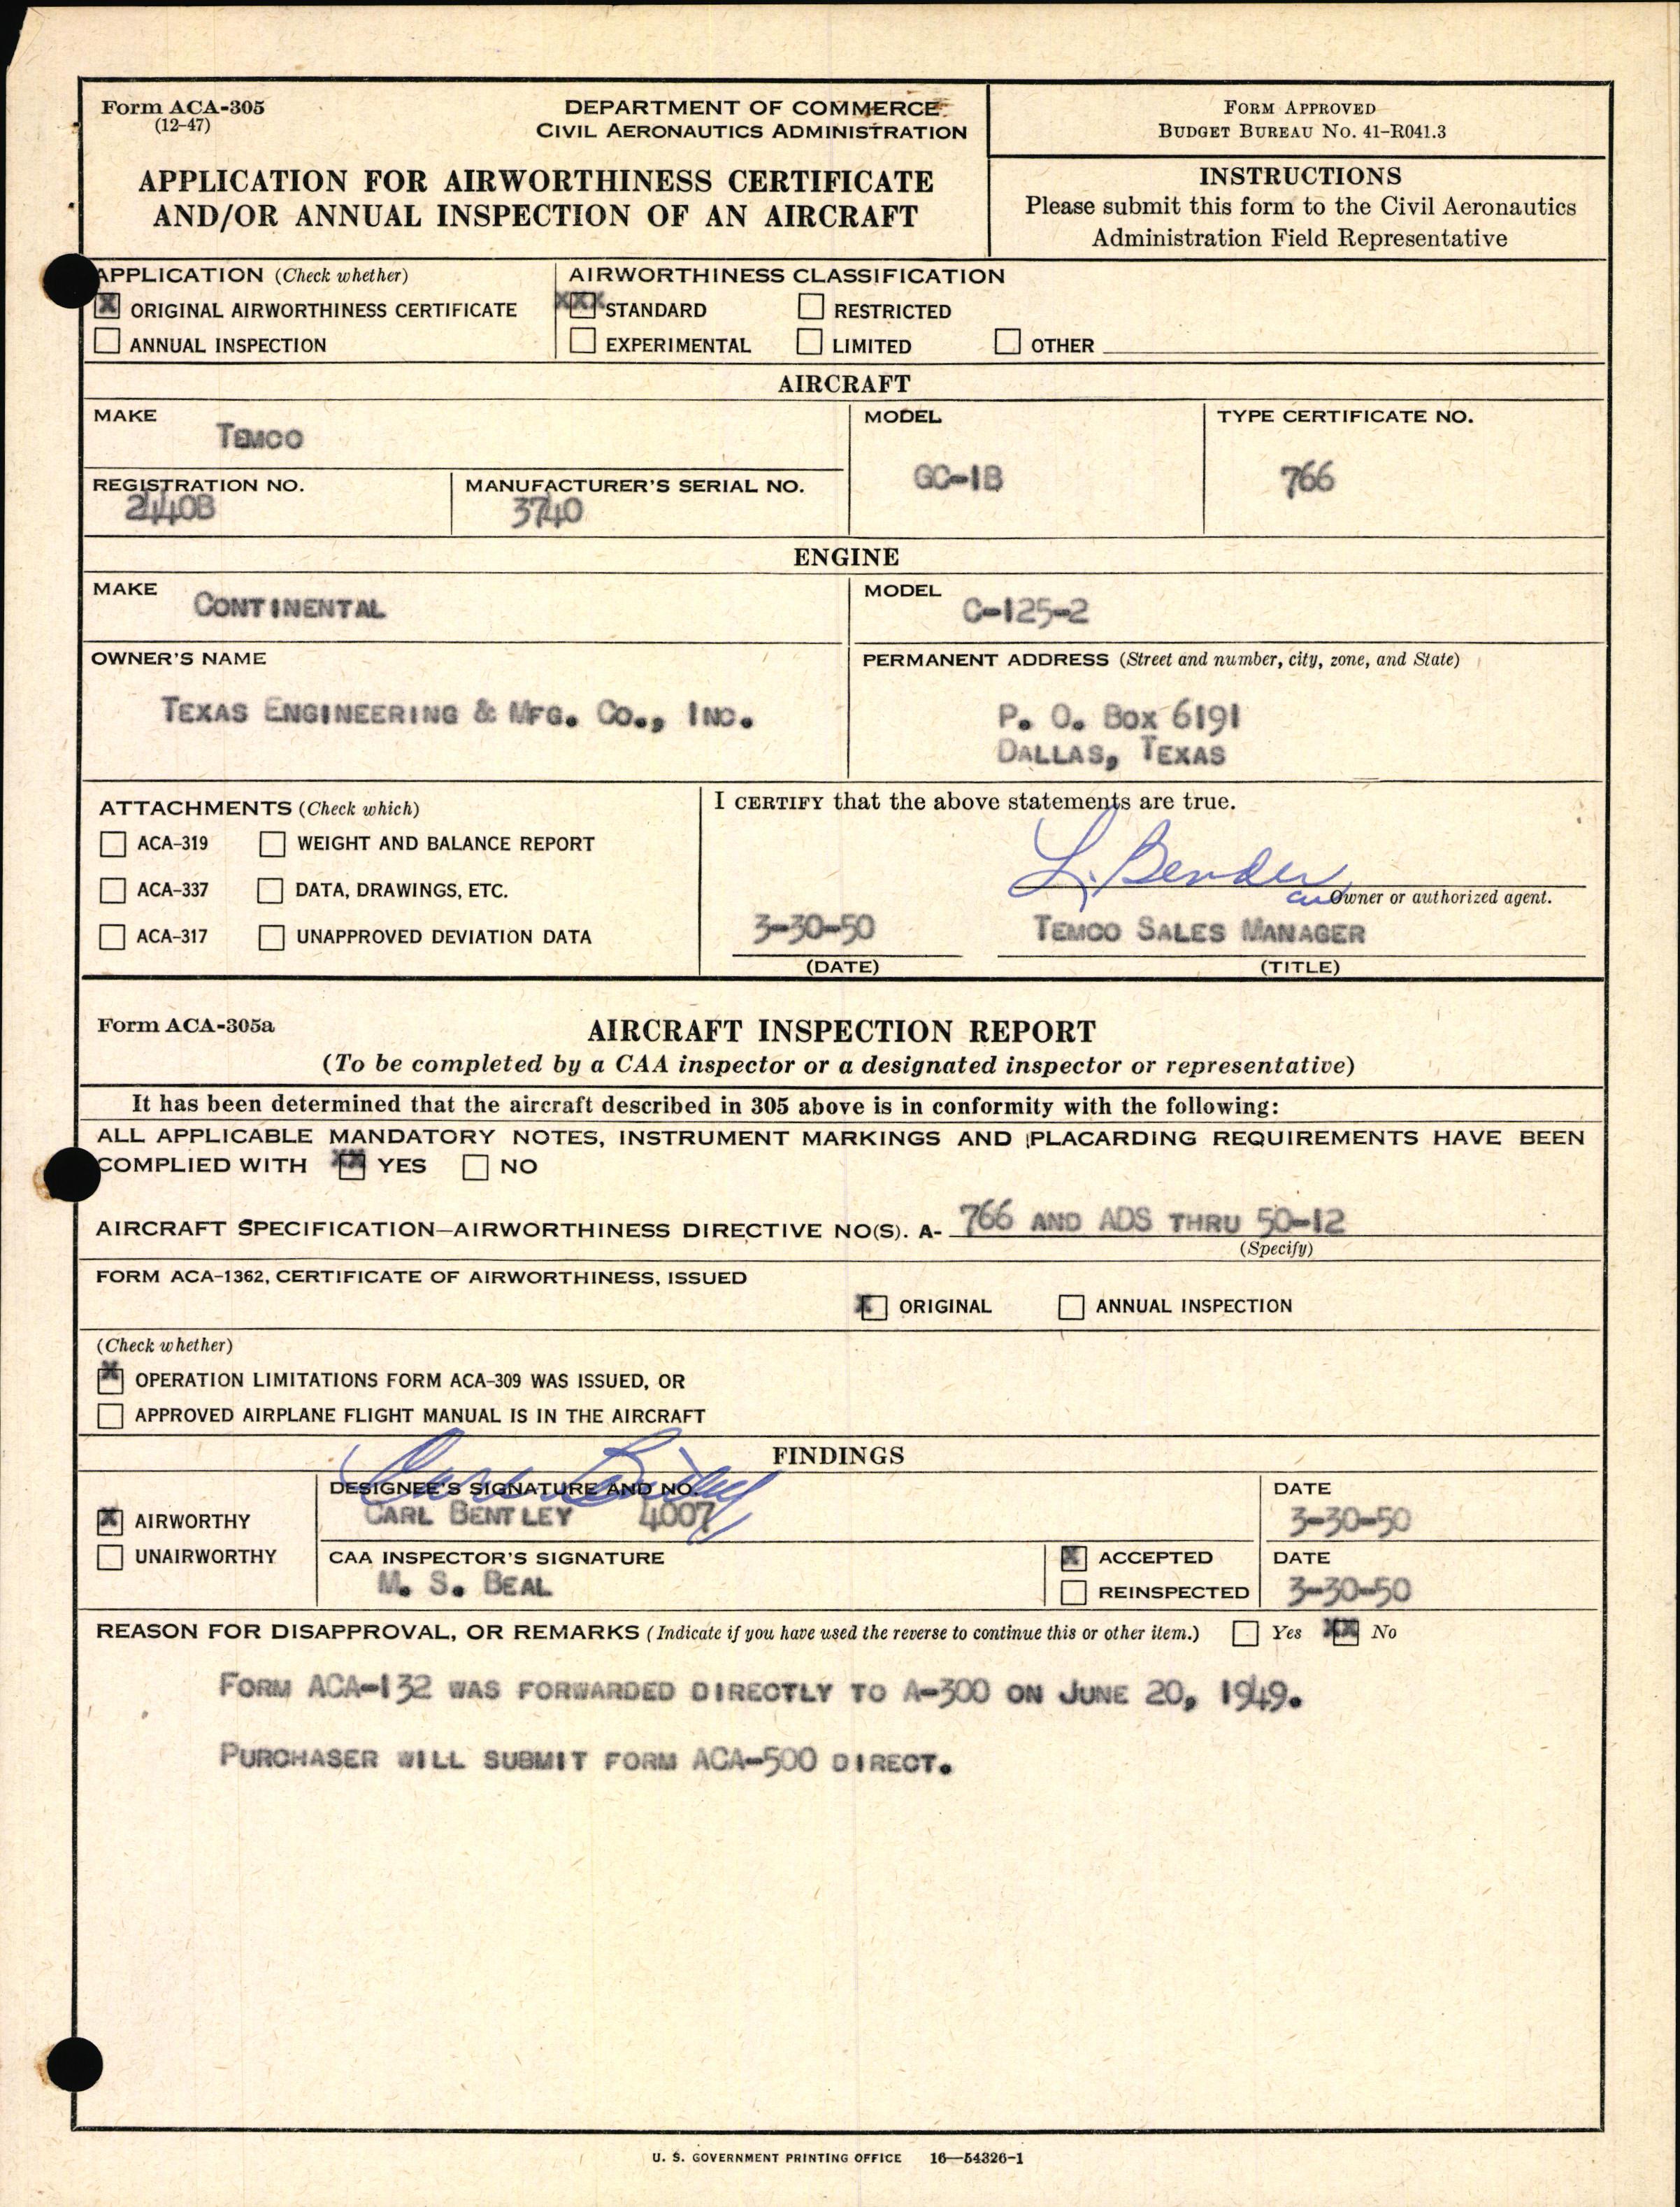 Form ACA-305
(12-47)
DEPARTMENT OF COMMERCE
CIVIL AERONAUTICS ADMINISTRATION
APPLICATION FOR AIRWORTHINESS CERTIFICATE
AND/OR ANNUAL INSPECTION OF AN AIRCRAFT
FORM APPROVED
BUDGET BUREAU NO. 41-R041.3
INSTRUCTIONS
Please submit this form to the Civil Aeronautics
Administration Field Representative
APPLICATION (Check whether)
X ORIGINAL AIRWORTHINESS CERTIFICATE
ANNUAL INSPECTION
AIRWORTHINESS CLASSIFICATION
XXX STANDARD
RESTRICTED
EXPERIMENTAL
LIMITED
OTHER
AIRCRAFT
MAKE
TEMCO
MODEL
GC-1B
TYPE CERTIFICATE NO.
766
REGISTRATION NO.
2440B
MANUFACTURER'S SERIAL NO.
3740
ENGINE
MAKE
CONTINENTAL
MODEL
C-125-2
OWNER'S NAME
TEXAS ENGINEERING & MFG. CO., INC.
PERMANENT ADDRESS (Street and number, city, zone, and State)
P. O. BOX 6191
DALLAS, TEXAS
ATTACHMENTS (Check which)
ACA-319
WEIGHT AND BALANCE REPORT
ACA-337
DATA, DRAWINGS, ETC.
ACA-317
UNAPPROVED DEVIATION DATA
I CERTIFY that the above statements are true.
L. Bender
Owner or authorized agent.
3-30-50
TEMCO SALES MANAGER
(DATE)
(TITLE)
Form ACA-305a
AIRCRAFT INSPECTION REPORT
(To be completed by a CAA inspector or a designated inspector or representative)
It has been determined that the aircraft described in 305 above is in conformity with the following:
ALL APPLICABLE MANDATORY NOTES, INSTRUMENT MARKINGS AND PLACARDING REQUIREMENTS HAVE BEEN
COMPLIED WITH XX YES NO
AIRCRAFT SPECIFICATION—AIRWORTHINESS DIRECTIVE NO(S). A- 766 AND ADS THRU 50-12
(Specify)
FORM ACA-1362, CERTIFICATE OF AIRWORTHINESS, ISSUED
X ORIGINAL
ANNUAL INSPECTION
(Check whether)
X OPERATION LIMITATIONS FORM ACA-309 WAS ISSUED, OR
APPROVED AIRPLANE FLIGHT MANUAL IS IN THE AIRCRAFT
FINDINGS
X AIRWORTHY
UNAIRWORTHY
DESIGNEE'S SIGNATURE AND NO.
Carl Bentley
CARL BENTLEY 4007
DATE
3-30-50
CAA INSPECTOR'S SIGNATURE
M. S. BEAL
X ACCEPTED
REINSPECTED
DATE
3-30-50
REASON FOR DISAPPROVAL, OR REMARKS (Indicate if you have used the reverse to continue this or other item.) Yes XX No
FORM ACA-132 WAS FORWARDED DIRECTLY TO A-300 ON JUNE 20, 1949.
PURCHASER WILL SUBMIT FORM ACA-500 DIRECT.
U. S. GOVERNMENT PRINTING OFFICE 16—54326-1